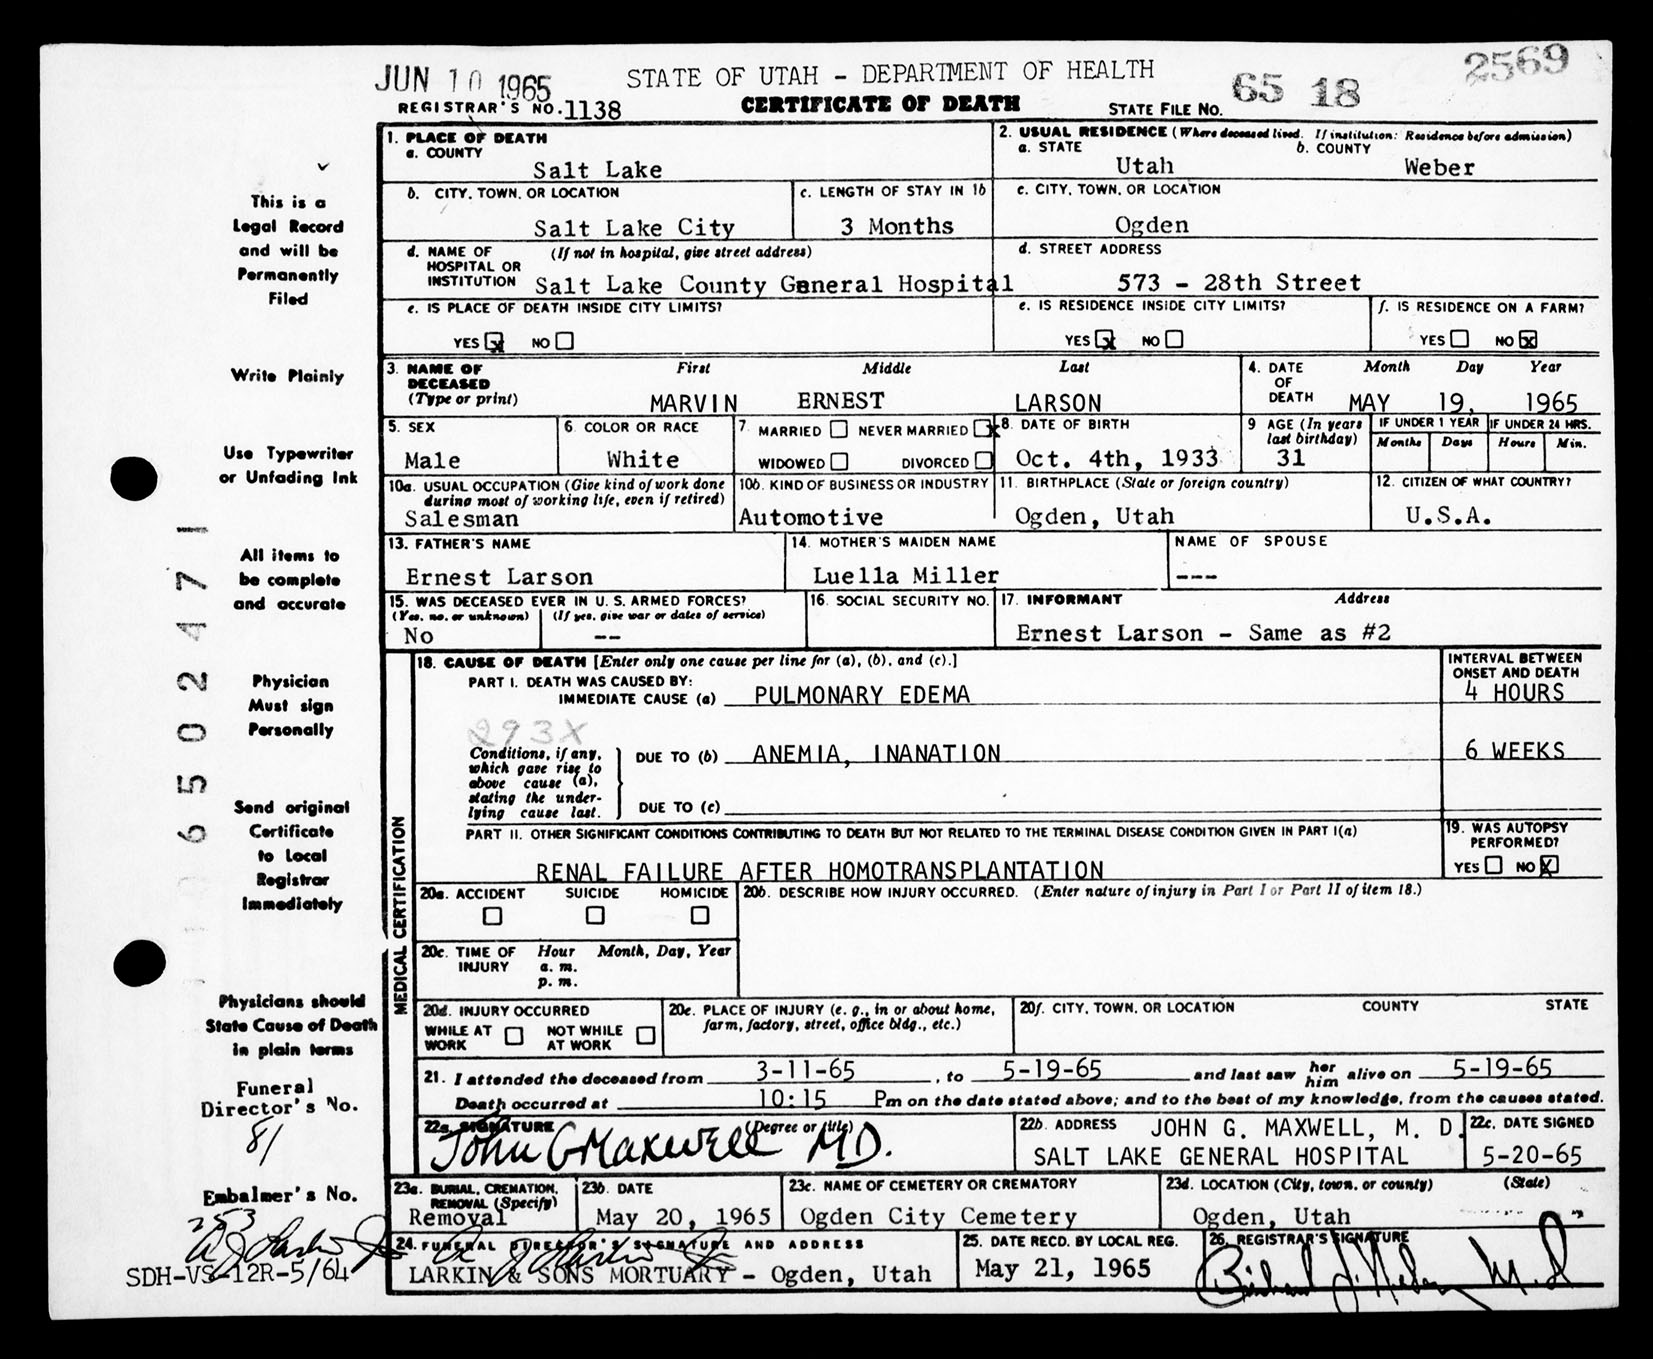 JUN 10 1965
STATE OF UTAH – DEPARTMENT OF HEALTH
2569
REGISTRAR'S NO. 1138
CERTIFICATE OF DEATH
STATE FILE NO. 65 18
1. PLACE OF DEATH
a. COUNTY
Salt Lake
2. USUAL RESIDENCE (Where deceased lived. If institution: Residence before admission)
a. STATE
Utah
b. COUNTY
Weber
b. CITY, TOWN, OR LOCATION
Salt Lake City
c. LENGTH OF STAY IN 1b
3 Months
c. CITY, TOWN, OR LOCATION
Ogden
d. NAME OF HOSPITAL OR INSTITUTION
(If not in hospital, give street address)
Salt Lake County General Hospital
d. STREET ADDRESS
573 - 28th Street
e. IS PLACE OF DEATH INSIDE CITY LIMITS?
YES x NO
e. IS RESIDENCE INSIDE CITY LIMITS?
YES x NO
f. IS RESIDENCE ON A FARM?
YES NO x
3. NAME OF DECEASED
(Type or print)
First Middle Last
MARVIN ERNEST LARSON
4. DATE OF DEATH
Month Day Year
MAY 19, 1965
5. SEX
Male
6. COLOR OR RACE
White
7. MARRIED NEVER MARRIED x
WIDOWED DIVORCED
8. DATE OF BIRTH
Oct. 4th, 1933
9 AGE (In years last birthday)
31
IF UNDER 1 YEAR
Months Days
IF UNDER 24 HRS.
Hours Min.
10a. USUAL OCCUPATION (Give kind of work done during most of working life, even if retired)
Salesman
10b. KIND OF BUSINESS OR INDUSTRY
Automotive
11. BIRTHPLACE (State or foreign country)
Ogden, Utah
12. CITIZEN OF WHAT COUNTRY?
U.S.A.
13. FATHER'S NAME
Ernest Larson
14. MOTHER'S MAIDEN NAME
Luella Miller
NAME OF SPOUSE
---
15. WAS DECEASED EVER IN U.S. ARMED FORCES?
(Yes, no, or unknown) (If yes, give war or dates of service)
No --
16. SOCIAL SECURITY NO.
17. INFORMANT Address
Ernest Larson - Same as #2
MEDICAL CERTIFICATION
18. CAUSE OF DEATH [Enter only one cause per line for (a), (b), and (c).]
PART I. DEATH WAS CAUSED BY:
IMMEDIATE CAUSE (a) PULMONARY EDEMA
INTERVAL BETWEEN ONSET AND DEATH
4 HOURS
293X
Conditions, if any, which gave rise to above cause (a), stating the underlying cause last.
DUE TO (b) ANEMIA, INANATION
6 WEEKS
DUE TO (c)
PART II. OTHER SIGNIFICANT CONDITIONS CONTRIBUTING TO DEATH BUT NOT RELATED TO THE TERMINAL DISEASE CONDITION GIVEN IN PART I(a)
RENAL FAILURE AFTER HOMOTRANSPLANTATION
19. WAS AUTOPSY PERFORMED?
YES NO X
20a. ACCIDENT SUICIDE HOMICIDE
20b. DESCRIBE HOW INJURY OCCURRED. (Enter nature of injury in Part I or Part II of item 18.)
20c. TIME OF INJURY
Hour Month, Day, Year
a. m.
p. m.
20d. INJURY OCCURRED
WHILE AT WORK NOT WHILE AT WORK
20e. PLACE OF INJURY (e. g., in or about home, farm, factory, street, office bldg., etc.)
20f. CITY, TOWN, OR LOCATION COUNTY STATE
21. I attended the deceased from 3-11-65, to 5-19-65 and last saw her him alive on 5-19-65
Death occurred at 10:15 Pm on the date stated above; and to the best of my knowledge, from the causes stated.
22a. SIGNATURE (Degree or title)
John G Maxwell MD.
22b. ADDRESS JOHN G. MAXWELL, M. D.
SALT LAKE GENERAL HOSPITAL
22c. DATE SIGNED
5-20-65
23a. BURIAL, CREMATION, REMOVAL (Specify)
Removal
23b. DATE
May 20, 1965
23c. NAME OF CEMETERY OR CREMATORY
Ogden City Cemetery
23d. LOCATION (City, town, or county) (State)
Ogden, Utah
24. FUNERAL DIRECTOR'S SIGNATURE AND ADDRESS
LARKIN & SONS MORTUARY - Ogden, Utah
25. DATE RECD. BY LOCAL REG.
May 21, 1965
26. REGISTRAR'S SIGNATURE
M.D.
This is a
Legal Record
and will be
Permanently
Filed
Write Plainly
Use Typewriter
or Unfading Ink
All items to
be complete
and accurate
Physician
Must sign
Personally
Send original
Certificate
to Local
Registrar
Immediately
Physicians should
State Cause of Death
in plain terms
Funeral
Director's No.
81
Embalmer's No.
253
SDH-VS-12R-5/64
6502471